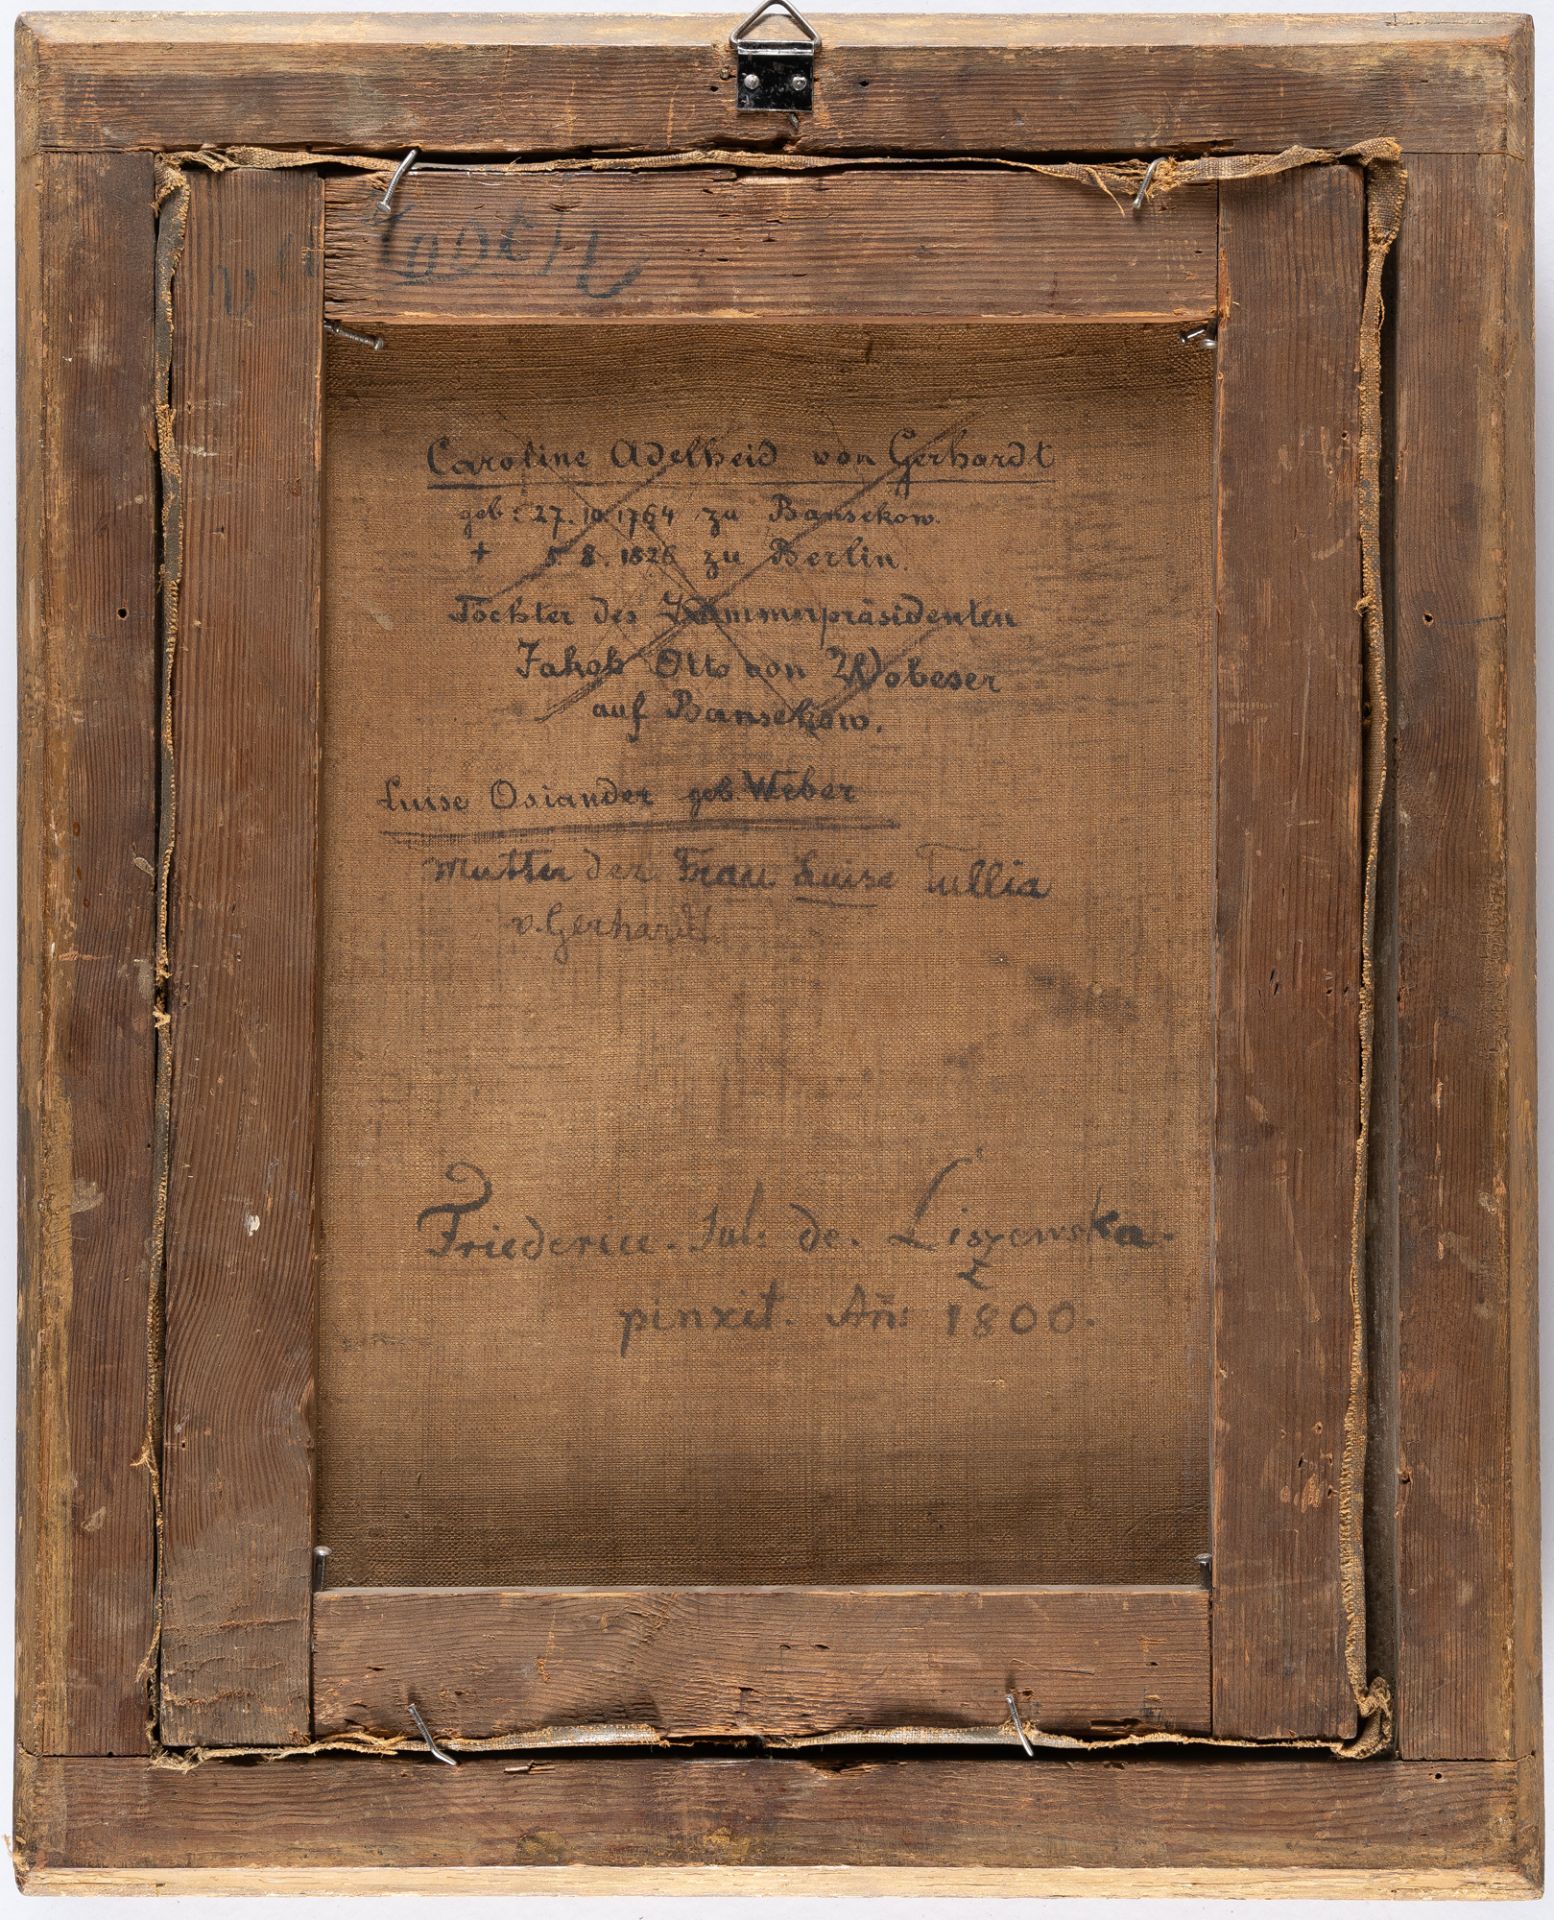 Caroline Adelheid von Gerhardt
geb: 27.10.1764 zu Bansekow.
+ 5.8.1826 zu Berlin.
Tochter des Kammerpräsidenten
Jakob Otto von Wobeser
auf Bansekow.
Luise Osiander geb. Weber
Mutter der Frau Luise Tullia
v. Gerhardt
Friederice. Jul: de. Liszewska.
pinxit. Añ: 1800.